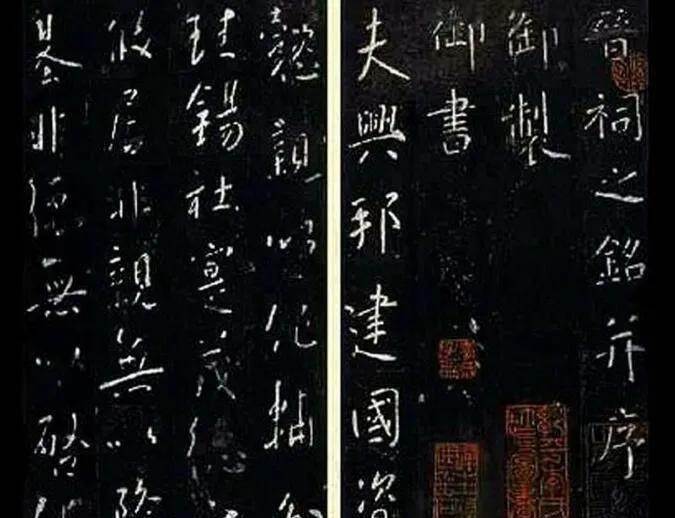 晉祠之銘并序
御製
御書
夫興邦建國資
懿親以作輔分
珪錫社寔茂德
攸居非親無以隆
基非德無以啓